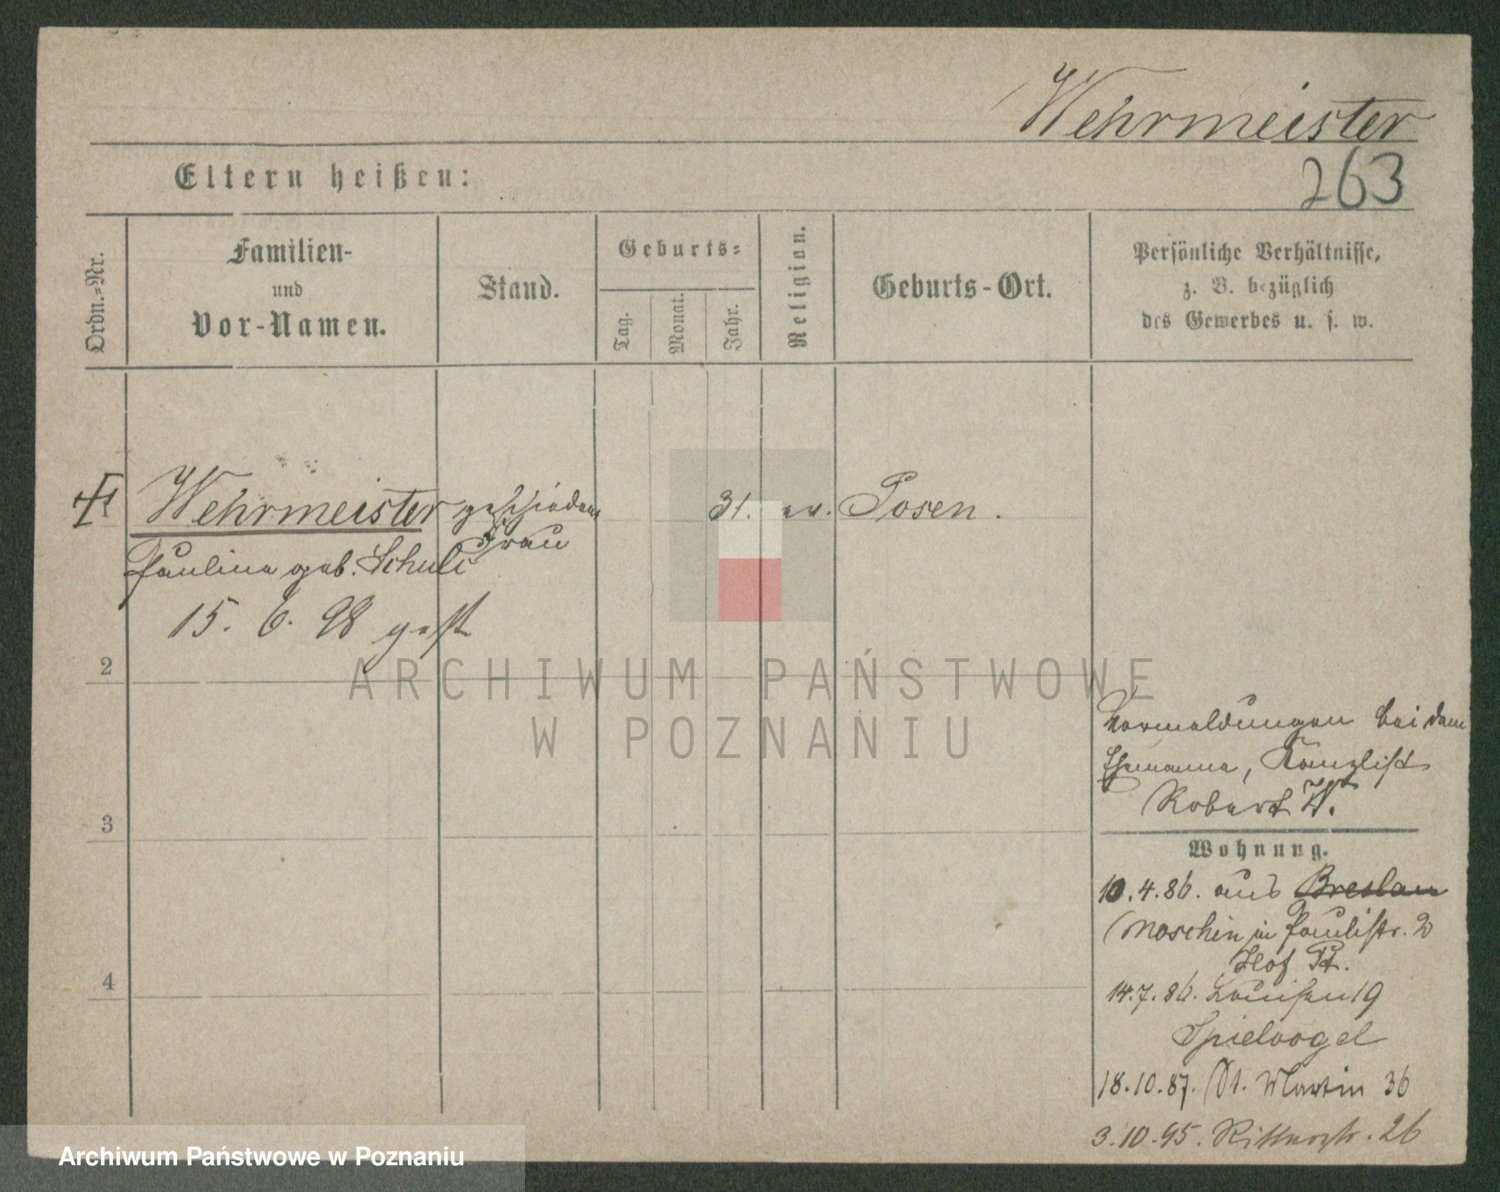 Wehrmeister
263
Eltern heißen:
Ordn.-Nr.
Familien-
und
Vor-Namen.
Stand.
Geburts-
Tag.
Monat.
Jahr.
Religion.
Geburts-Ort.
Persönliche Verhältnisse,
z. B. bezüglich
des Gewerbes u. s. w.
Wehrmeister geschiedene 31. ev. Posen.
Frau
Paulina geb. Schulz
15. 6. 98 gest
2
ARCHIWUM PAŃSTWOWE
W POZNANIU
Vormeldungen bei dem
Ehemanne, Kanzlist
Robert W.
3
Wohnung.
10.4.86. aus Breslau
Moschin in Paulistr. 2
Hof Pt.
4
14.7.86. Louisen 19
Spielvogel
18.10.87. St. Martin 36
3.10.95. Ritterstr. 26
Archiwum Państwowe w Poznaniu